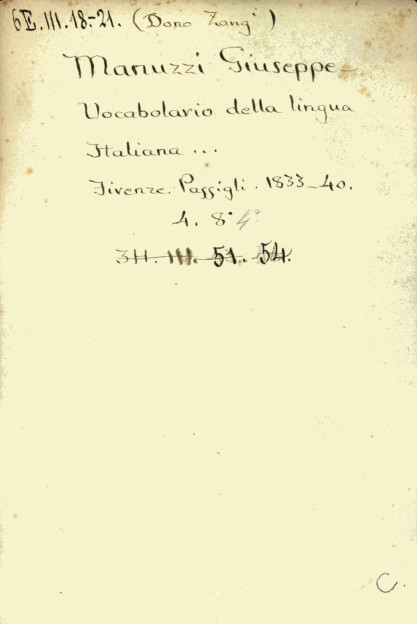 6E.III.18-21. (Dono Zangi)
Manuzzi Giuseppe
Vocabolario della lingua
Italiana ...
Firenze. Passigli. 1833-40.
4. 8° 4°
3H. III. 51. 54.
C.